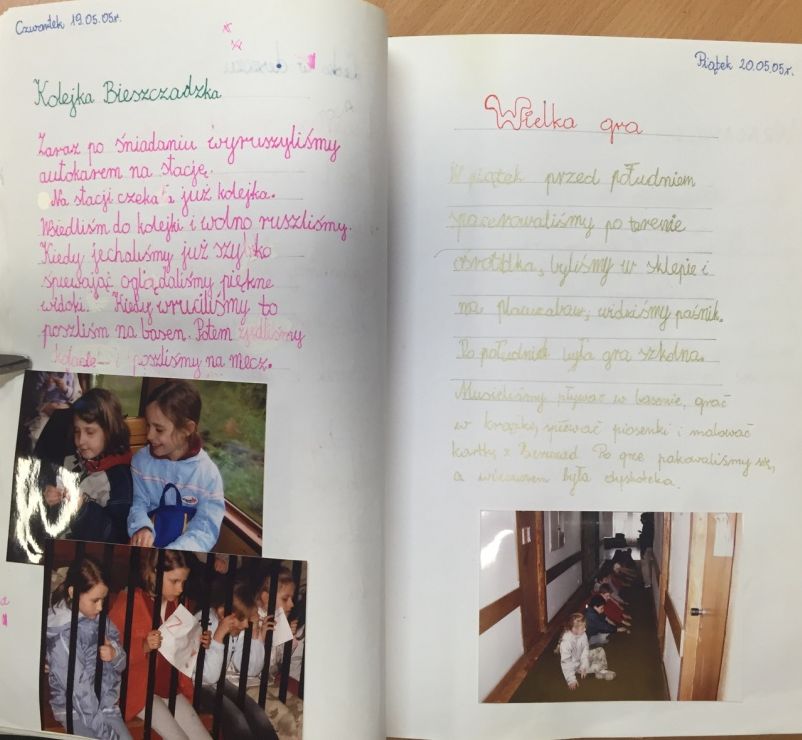 Czwartek 19.05.05r.
Kolejka Bieszczadzka
Zaraz po śniadaniu wyruszyliśmy
autokarem na stację.
Na stacji czekała już kolejka.
Wsiedliśm do kolejki i wolno ruszliśmy.
Kiedy jechaliśmy już szybko
śpiewając oglądaliśmy piękne
widoki. Kiedy wruciliśmy to
poszliśm na basen. Potem zjedliśmy
kolację i poszliśmy na mecz.
7
Piątek 20.05.05r.
Wielka gra
W piątek przed południem
spacerowaliśmy po terenie
ośrodka, byliśmy w sklepie i
na placuzabaw, widziśmy paśnik.
Po południu była gra szkolna.
Musieliśmy pływać w basenie, grać
w krążki, śpiewać piosenki i malować
kartkę z Bieszczad. Po grze pakowaliśmy się,
a wieczorem była dyskoteka.